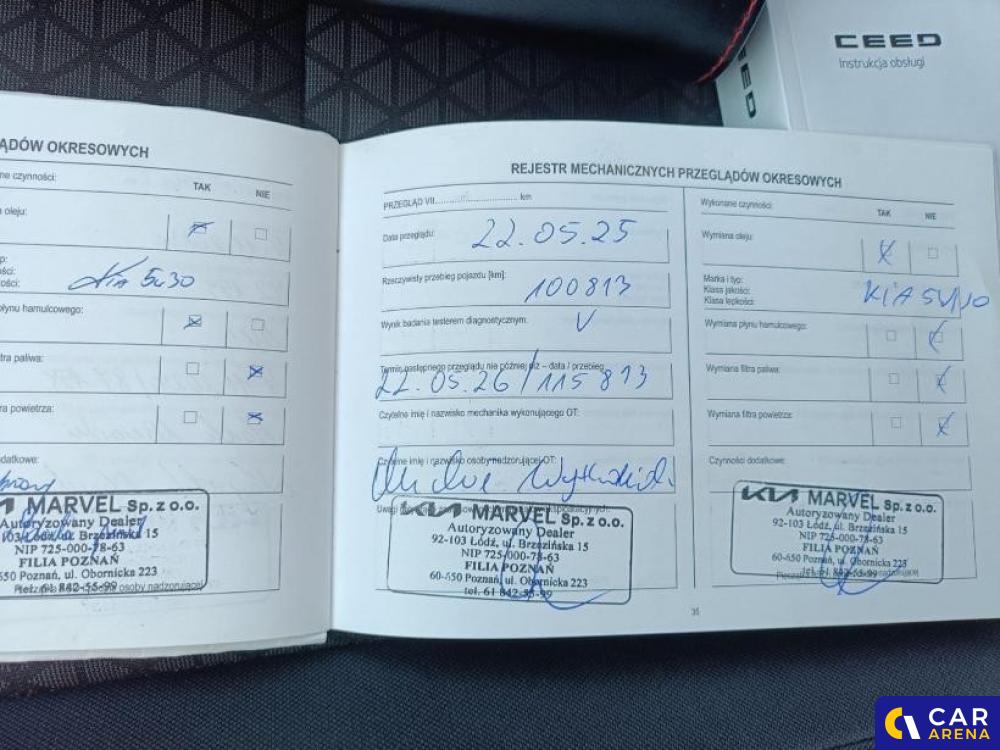 CEED
Instrukcja obsługi
ĄDÓW OKRESOWYCH
ne czynności:
TAK
NIE
oleju:
ości:
Kia 5w30
płynu hamulcowego:
tra paliwa:
ra powietrza:
datkowe:
MARVEL Sp. z o.o.
Autoryzowany Dealer
103 Łódź, ul. Brzezińska 15
NIP 725-000-78-63
FILIA POZNAŃ
650 Poznań, ul. Obornicka 223
tel. 61 842-55-99
osoby nadzorującej
REJESTR MECHANICZNYCH PRZEGLĄDÓW OKRESOWYCH
PRZEGLĄD VII.............................. km
Data przeglądu:
22.05.25
Rzeczywisty przebieg pojazdu [km]:
100813
Wynik badania testerem diagnostycznym:
V
Termin następnego przeglądu nie później niż – data / przebieg
22.05.26/115813
Czytelne imię i nazwisko mechanika wykonującego OT:
Czytelne imię i nazwisko osoby nadzorującej OT:
Uwagi
KIA MARVEL Sp. z o.o.
Autoryzowany Dealer
92-103 Łódź, ul. Brzezińska 15
NIP 725-000-78-63
FILIA POZNAŃ
60-650 Poznań, ul. Obornicka 223
tel. 61 842-55-99
Wykonane czynności:
TAK
NIE
Wymiana oleju:
Marka i typ:
Klasa jakości:
Klasa lepkości:
KIA
Wymiana płynu hamulcowego:
Wymiana filtra paliwa:
Wymiana filtra powietrza:
Czynności dodatkowe:
KIA MARVEL Sp. z o.o.
Autoryzowany Dealer
92-103 Łódź, ul. Brzezińska 15
NIP 725-000-78-63
FILIA POZNAŃ
60-650 Poznań, ul. Obornicka 223
tel. 61 842-55-99
35
CAR
ARENA